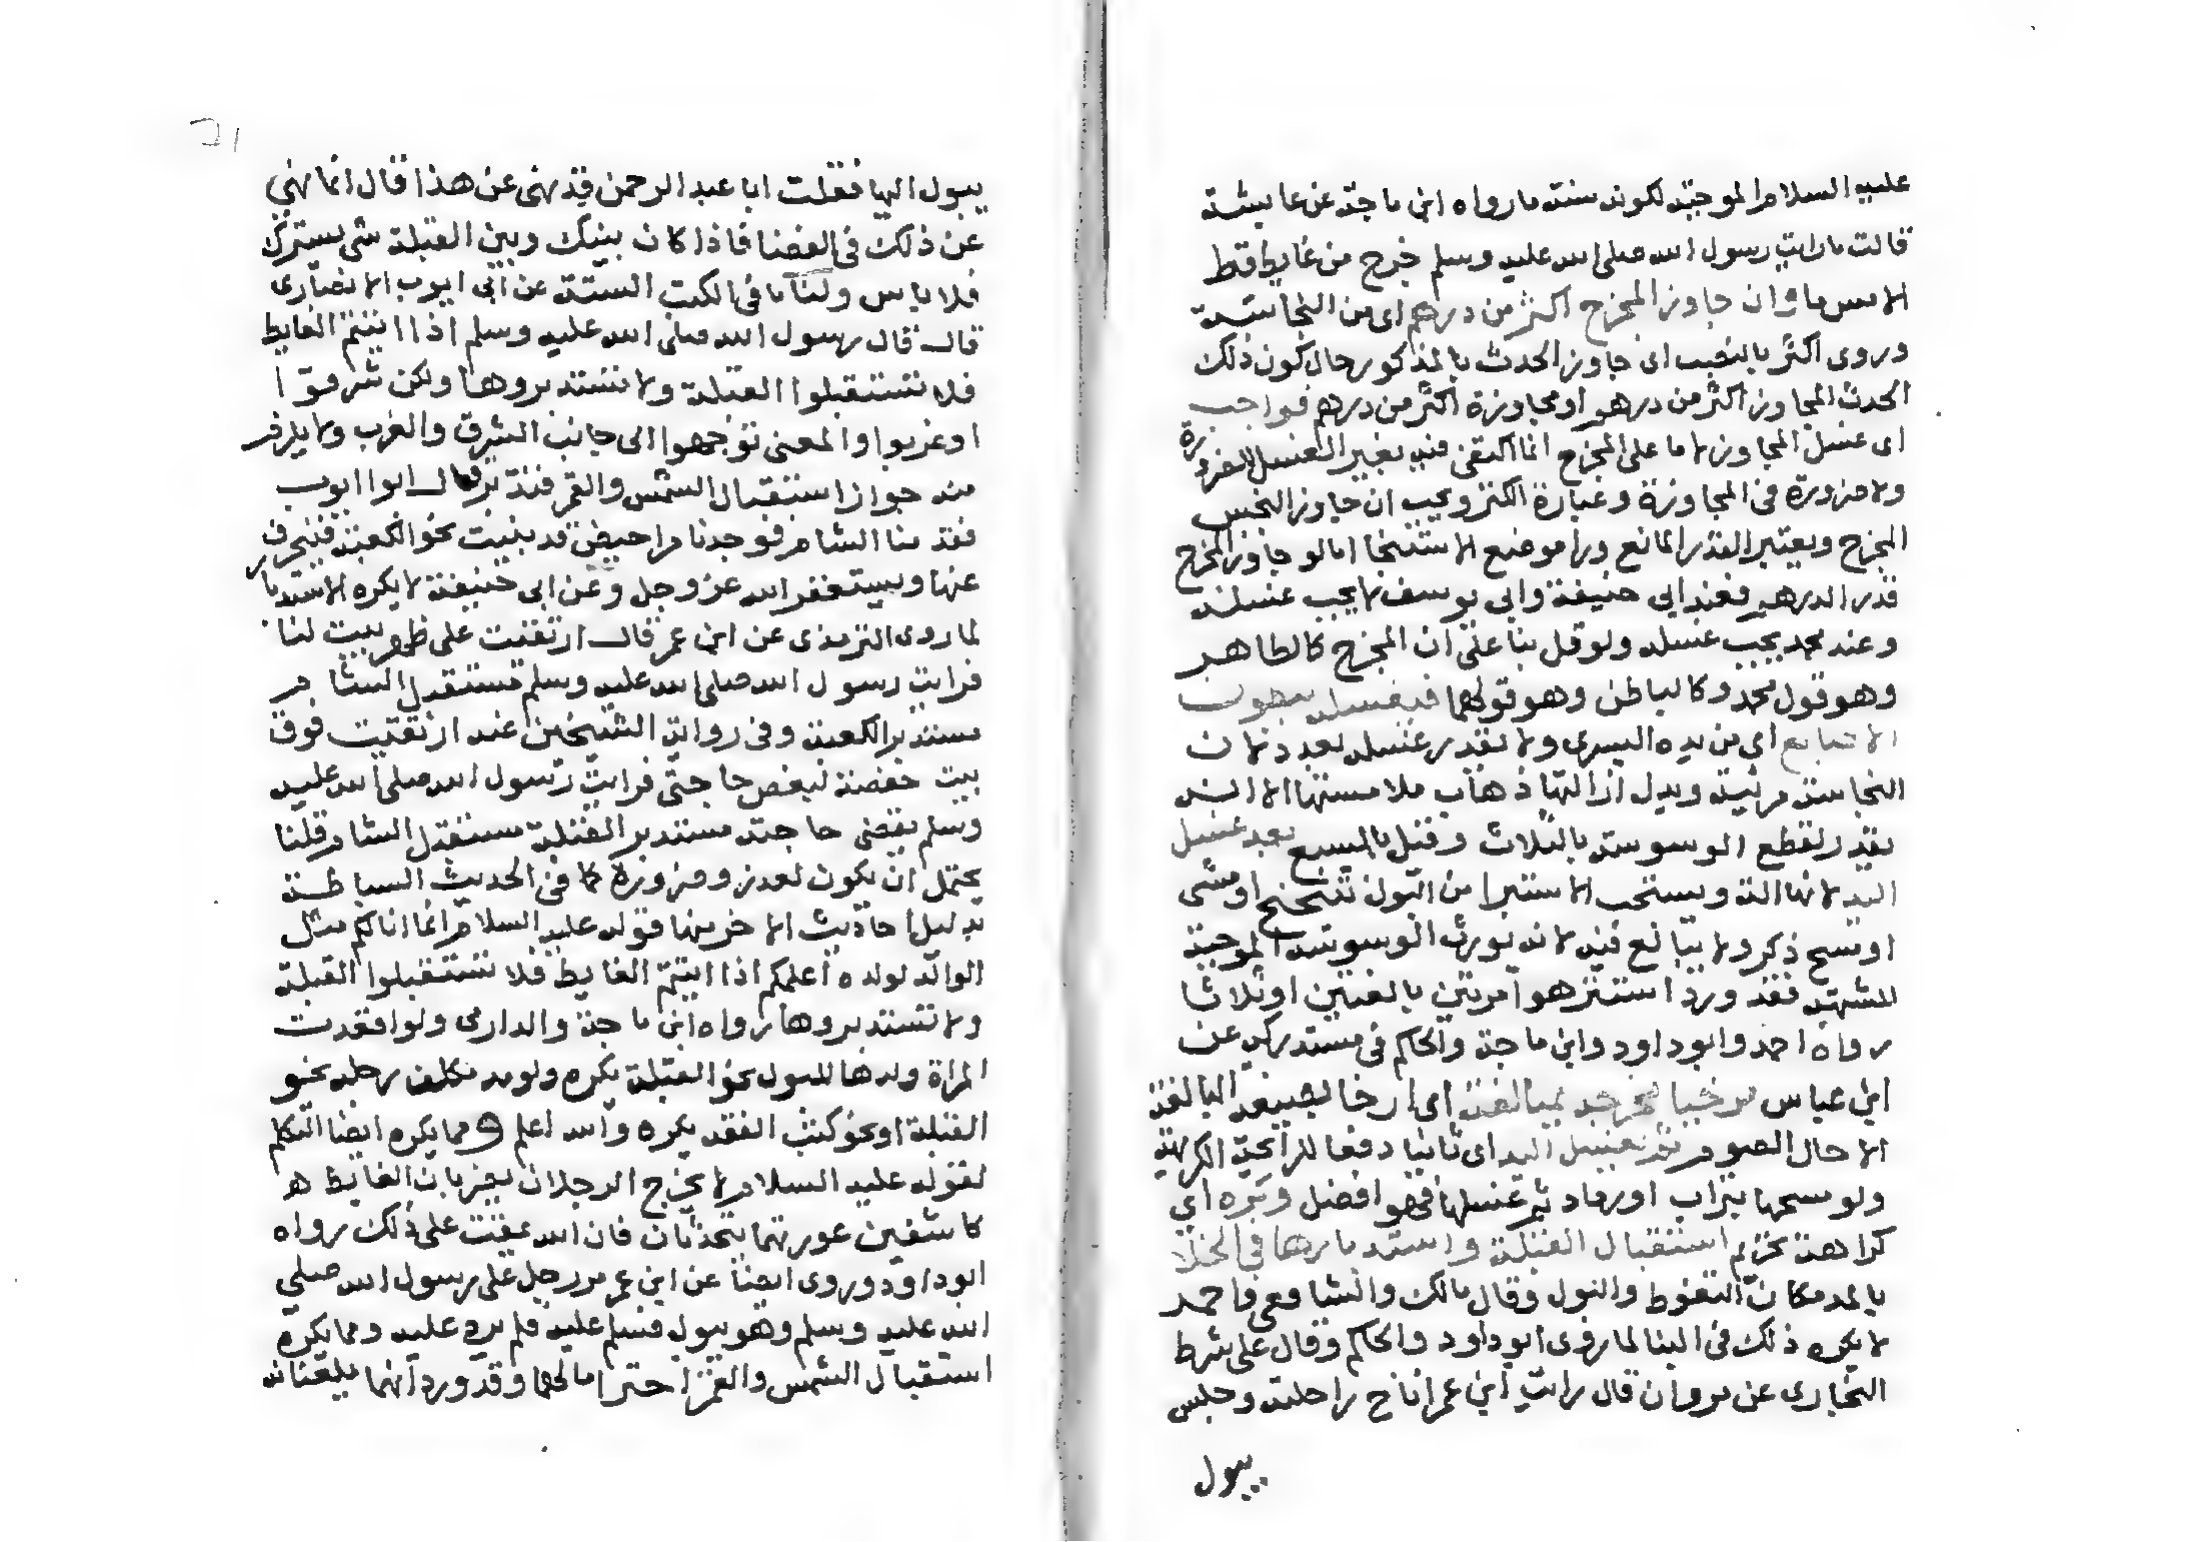 عليه السلام الموجبة لكونه سنته ما رواه ابن ماجة عن عايشة
قالت ما رايت رسول الله صلى الله عليه وسلم خرج من غايط قط
الا مس ما وان جاوز المخرج اكثر من درهم اى من النجاسة
وروى اكثر بالنصب اى جاوز الحدث بالمذكور حال كون ذلك
الحدث المجاوز اكثر من درهم او مجاوزة اكثر من درهم فواجب
اى غسل المجاوز لا ما على المخرج انما اكتفى فيه بغير الغسل للضرورة
ولا ضرورة فى المجاوزة وعبارة الكنز ويجب ان جاوز النجس
المخرج ويعتبر القدر المانع ورا موضع الاستنجا اما لو جاوز المخرج
قدر الدرهم فعند ابى حنيفة وابى يوسف لا يجب غسله
وعند محمد يجب غسله ولو قل بنا على ان المخرج كالطاهر
وهو قول محمد وكالباطن وهو قولهما فيغسله ببطون
الاصابع اى من يده اليسرى ولا يقدر غسله بعدد لان
النجاسة مرئية وبدل ازالتها ذهاب ملامستها الا انه
يقدر لقطع الوسوسة بالثلاث وقيل بالسبع بعد غسل
اليد لانها الة ويستحب الاستبرا من البول بتنحنح او مشى
او مسح ذكر ولا يبالغ فيه لانه يورث الوسوسة الموجبة
للشبهة فقد ورد استنزهوا مرتين بالغتين او ثلاثا
رواه احمد وابو داود وابن ماجة والحاكم فى مستدركه عن
ابن عباس مرخيا مخرجه بمبالغة اى ارخا بصيغة المبالغة
الا حال الصوم ثم يغسل اليد اى ثانيا دفعا للرايحة الكريهة
ولو مسحها بتراب او رماد ثم غسلها فهو افضل وكره اى
كراهة تحريم استقبال القبلة واستدبارها فى الخلا
بالمد مكان التغوط والبول وقال مالك والشافعى واحمد
لا يكره ذلك فى البنا لما روى ابو داود والحاكم وقال على شرط
البخارى عن مروان قال رايت ابن عمر اناخ راحلته وجلس
يبول
٢١
يبول اليها فقلت ابا عبد الرحمن قد نهى عن هذا قال انما نهى
عن ذلك فى الفضا فاذا كان بينك وبين القبلة شى يسترك
فلا باس ولنا ما فى الكتب الستة عن ابى ايوب الانصارى
قال قال رسول الله صلى الله عليه وسلم اذا اتيتم الغايط
فلا تستقبلوا القبلة ولا تستدبروها ولكن شرقوا
او غربوا والمعنى توجهوا الى جانب الشرق والغرب ولا يلزم
منه جواز استقبال الشمس والقمر فتدبر قال ابو ايوب
فقدمنا الشام فوجدنا مراحيض قد بنيت نحو الكعبة فننحرف
عنها ونستغفر الله عز وجل وعن ابى حنيفة لا يكره الاستدبار
لما روى الترمذى عن ابن عمر قال ارتقيت على ظهر بيت لنا
فرايت رسول الله صلى الله عليه وسلم مستقبل الشام
مستدبر الكعبة وفى رواية الشيخين عنه ارتقيت فوق
بيت حفصة لبعض حاجتى فرايت رسول الله صلى الله عليه
وسلم يقضى حاجته مستدبر القبلة مستقبل الشام قلنا
يحتمل ان يكون لعذر وضرورة كما فى الحديث السباطة
بدليل احاديث الاخر منها قوله عليه السلام انما انا لكم مثل
الوالد لولده اعلمكم اذا اتيتم الغايط فلا تستقبلوا القبلة
ولا تستدبروها رواه ابن ماجة والدارمى ولو اقعدت
المراة ولدها للبول نحو القبلة يكره ولو مد مكلف رجله نحو
القبلة او نحو كتب الفقه يكره والله اعلم ومما يكره ايضا التكلم
لقوله عليه السلام لا يخرج الرجلان يضربان الغايط
كاشفين عورتهما يتحدثان فان الله يمقت على ذلك رواه
ابو داود وروى ايضا عن ابن عمر مر رجل على رسول الله صلى
الله عليه وسلم وهو يبول فسلم عليه فلم يرد عليه ومما يكره
استقبال الشمس والقمر احتراما لهما وقد ورد انهما يلعنانه